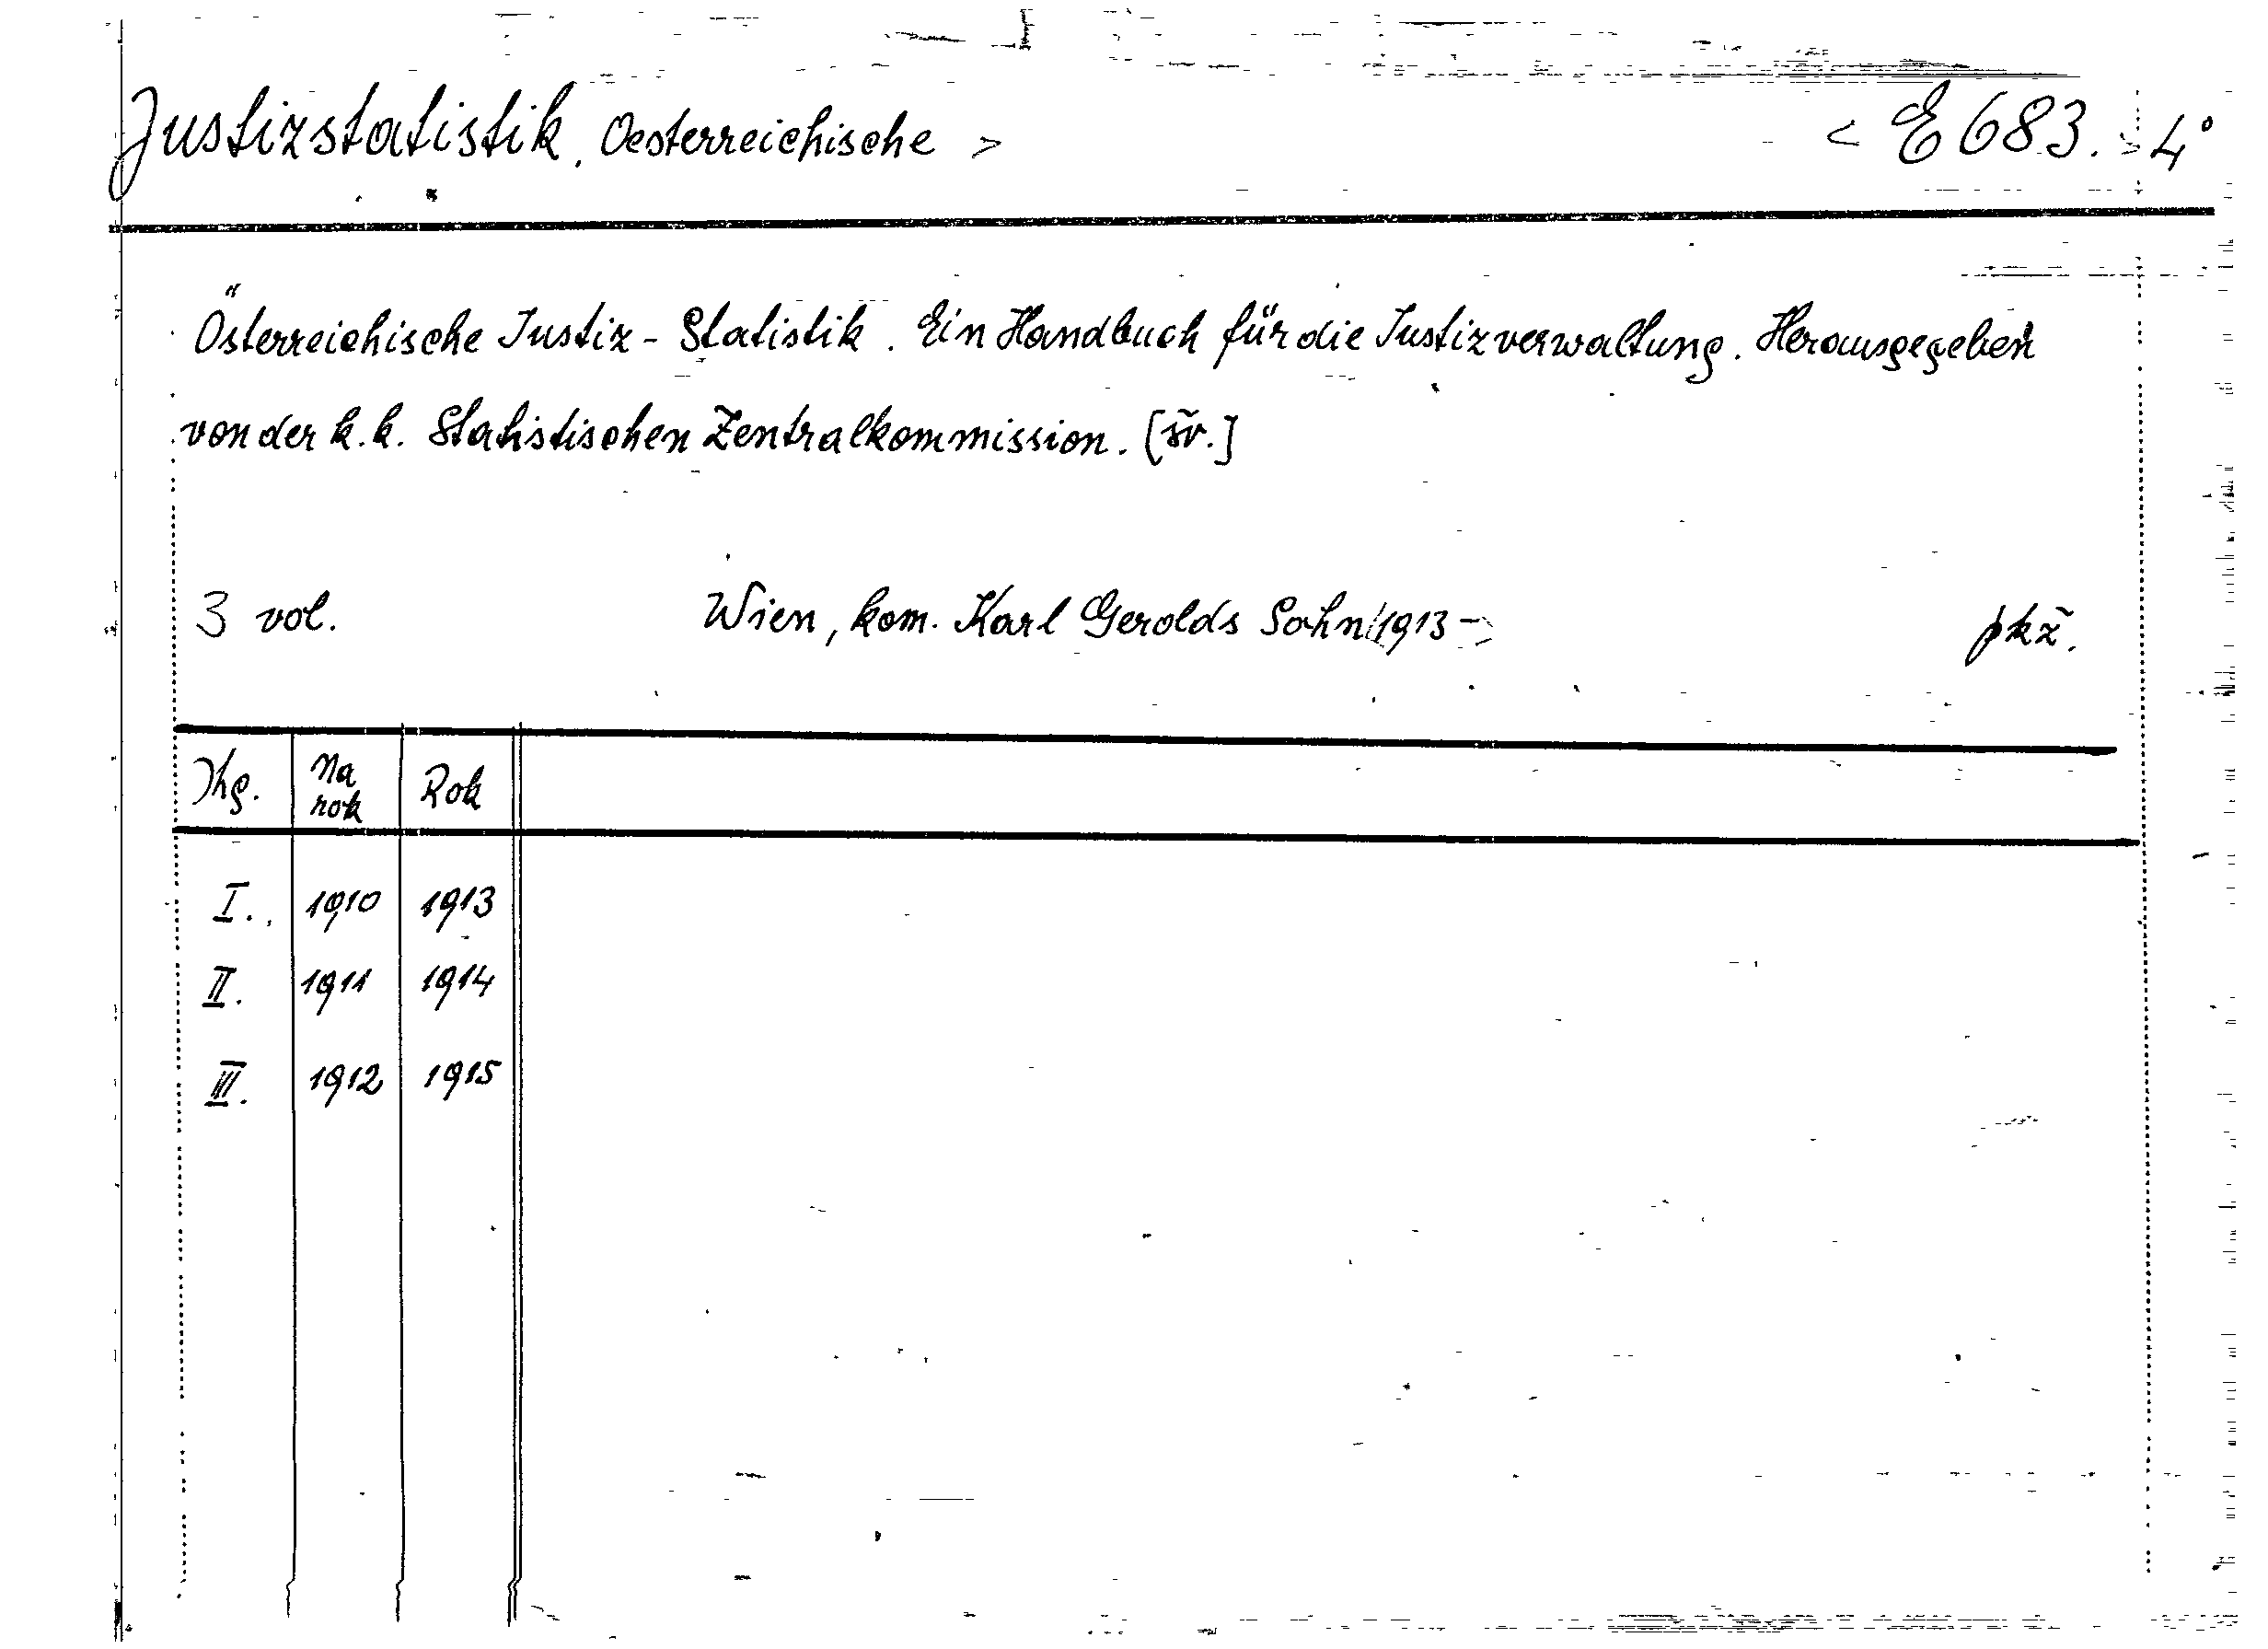 Justizstatistik, Oesterreichische > < E 683. > 4°
Österreichische Justiz - Statistik. Ein Handbuch für die Justizverwaltung. Herausgegeben
von der k. k. Statistischen Zentralkommission. [šv.]
3 vol. Wien, kom. Karl Gerolds Sohn 1913 - pkž.
Jhg. Na rok Rok
I. 1910 1913
II. 1911 1914
III. 1912 1915